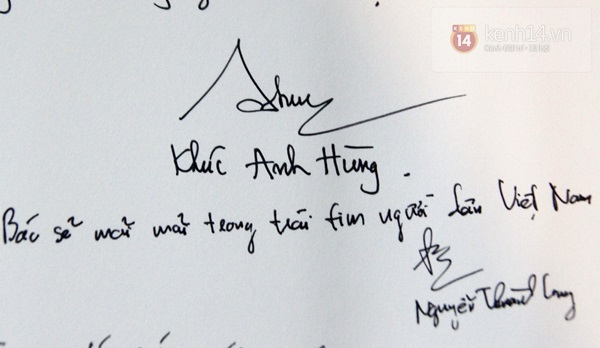 kenh14.vn
14
Khúc Anh Hùng.
Bác sẽ mãi mãi trong trái tim người dân Việt Nam
Nguyễn Thành Long